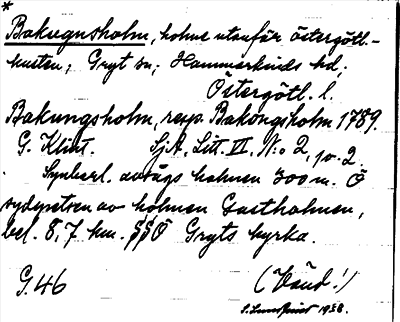 *
Bakugnsholm, holme utanför östergötl.-
kusten; Gryt sn; Hammarkinds hd;
Östergötl. l.
Bakungsholm, resp. Bakongsholm 1789.
G. Klint. SjA. Litt. VI, N:o 2, p. 2.
Synberl. avsågs holmen 300 m. Ö
sydspetsen av holmen Gastholmen,
bel. 8,7 km. SSÖ Gryts kyrka.
G. 46 (Vänd!)
S. Lundqvist 1938.